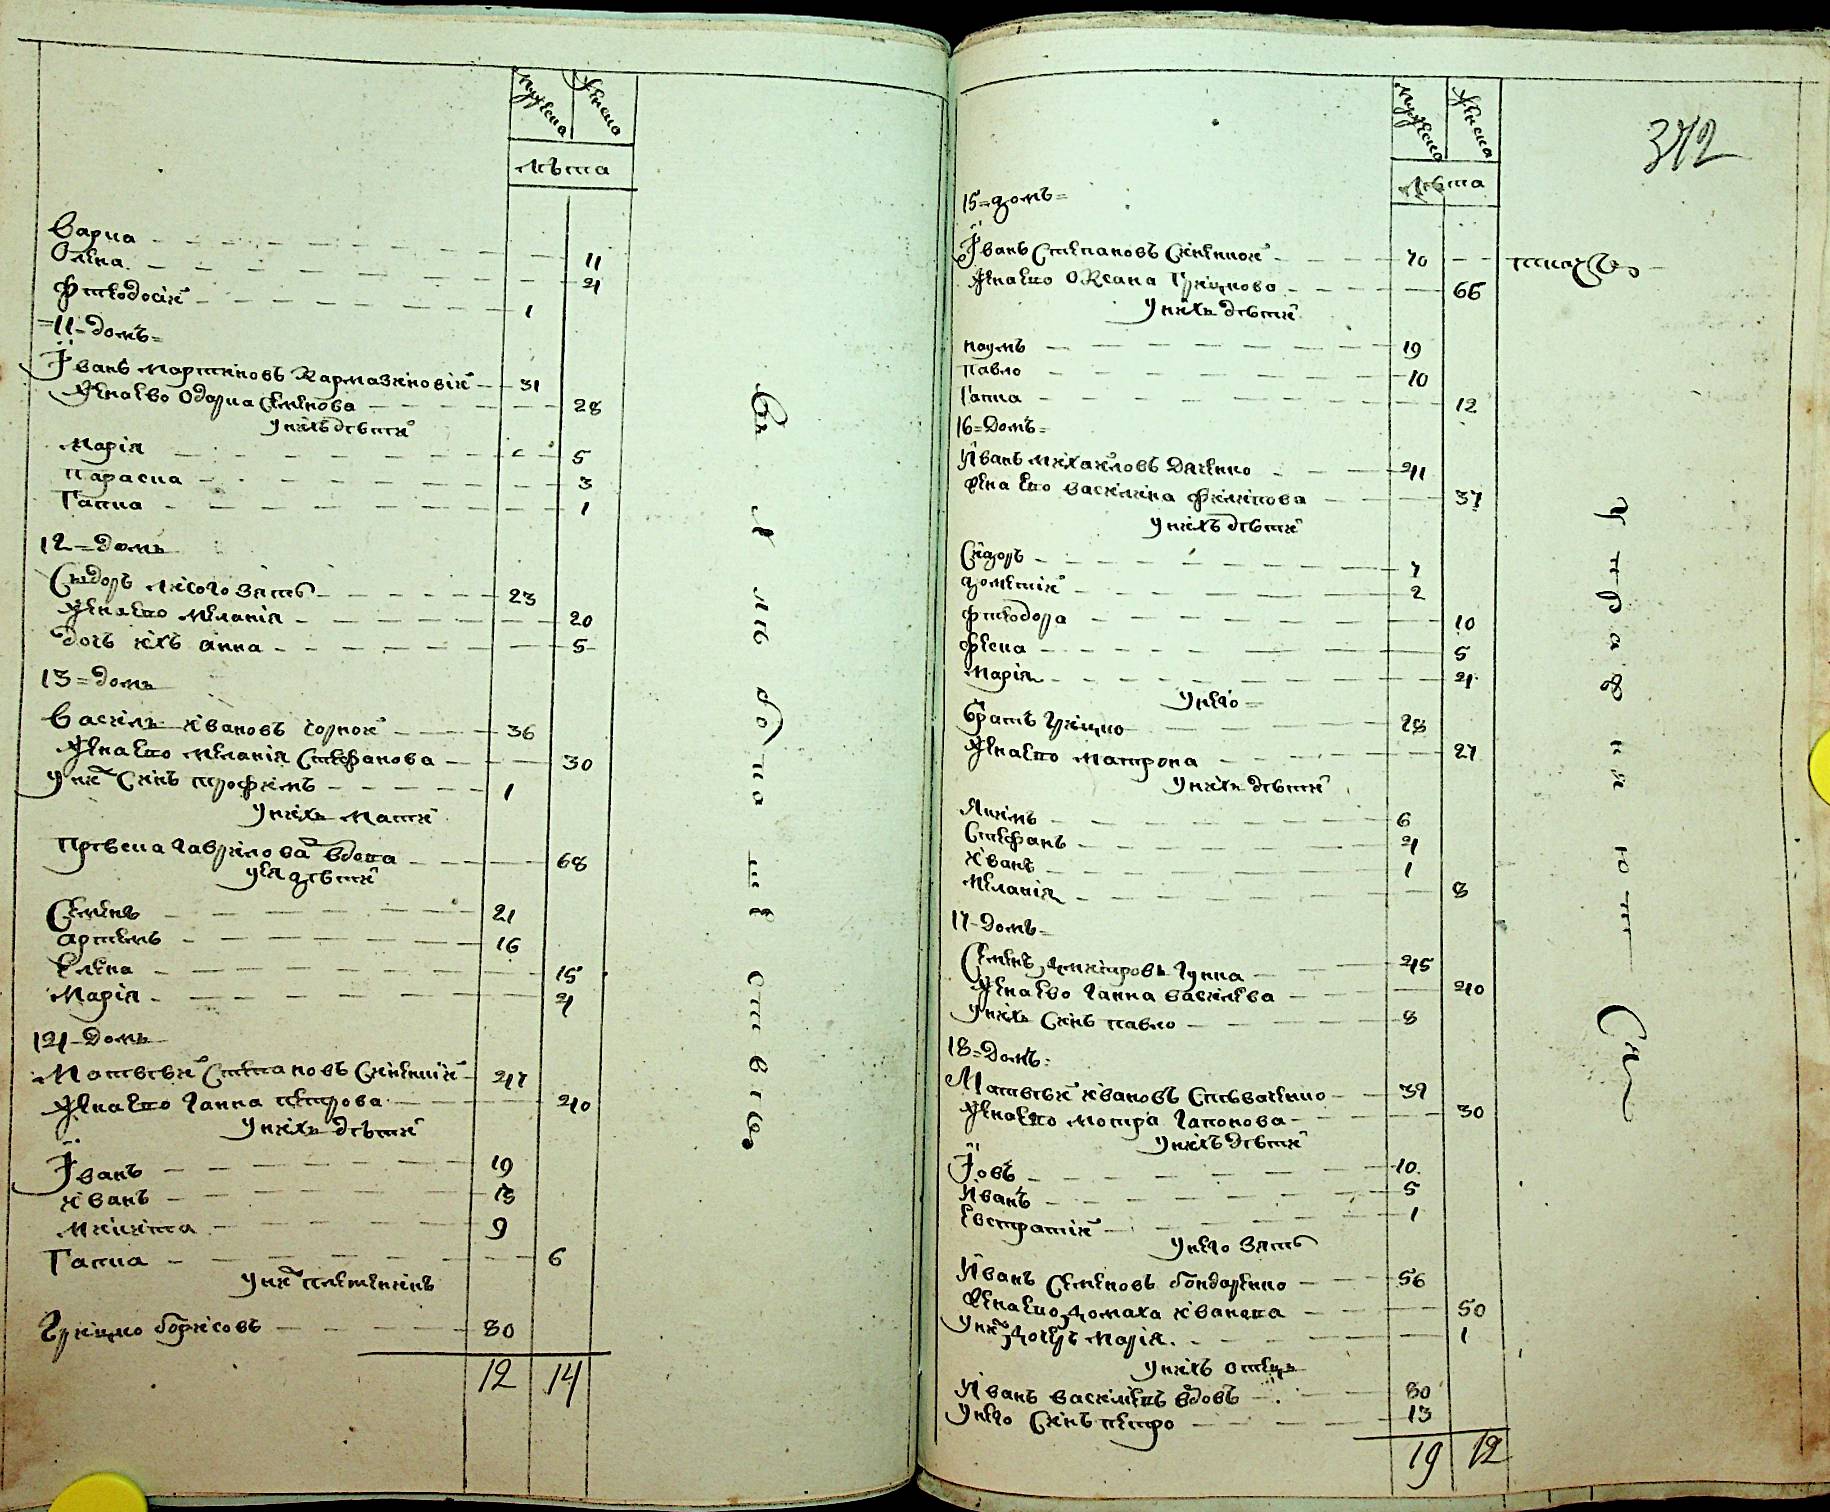 мужеска женска
лѣта
Варка 11
Олена 4
Фтеодосій 1
11 домъ
Іванъ Мартиновъ Кармазиновій 31
Жена его Одарка Семенова 28
У нихъ дѣти
Марія 5
Параска 3
Гапка 1
12 домъ
Сидоръ Лисого зять 23
Жена его Меланія 20
Дочь ихъ Анна 5
13 домъ
Василь Ивановъ Чорной 36
Жена его Меланія Стефанова 30
У них Синъ Трофимъ 1
У нихъ мати
Пріська Гаврилова вдова 68
У ея дѣти
Семенъ 21
Артемъ 16
Елена 15
Марія 4
14 домъ
Матвѣй Степановъ 47
Жена его Ганна Петрова 40
У нихъ дѣти
Іванъ 19
Иванъ 13
Микита 9
Гапка 6
У них племенникъ
Грицко Борисовъ 30
12 14
372
мужеска женска
лѣта
15 домъ
Іванъ Степановъ 70
Жена его Оксана Грицкова 66
У нихъ дѣти
Наумъ 19
Павло 10
Гапка 12
16 домъ
Иванъ Михайловъ Дяченко 41
Жена его Василина Филипова 37
У нихъ дѣти
Сидоръ 7
2
Фтеодора 10
Феска 5
Марія 4
У него
братъ Грицко 28
Жена его Матрона 27
У нихъ дѣти
Якимъ 6
Стефанъ 4
Иванъ 1
Меланія 8
17 домъ
Семенъ Дмитровъ 45
Жена его Ганна Василева 40
У нихъ Синъ Павло 8
18 домъ
Матвѣй Ивановъ 39
Жена его Мотра Гапонова 30
У нихъ дѣти
Іовъ 10
Иванъ 5
Евстратій 1
У него зять
Иванъ Семеновъ Бондаренко 56
Жена его Домаха Иванова 50
У них дочерь Марія 1
У нихъ отецъ
Иванъ Василевъ вдовъ 80
У него Синъ Петро 13
19 12